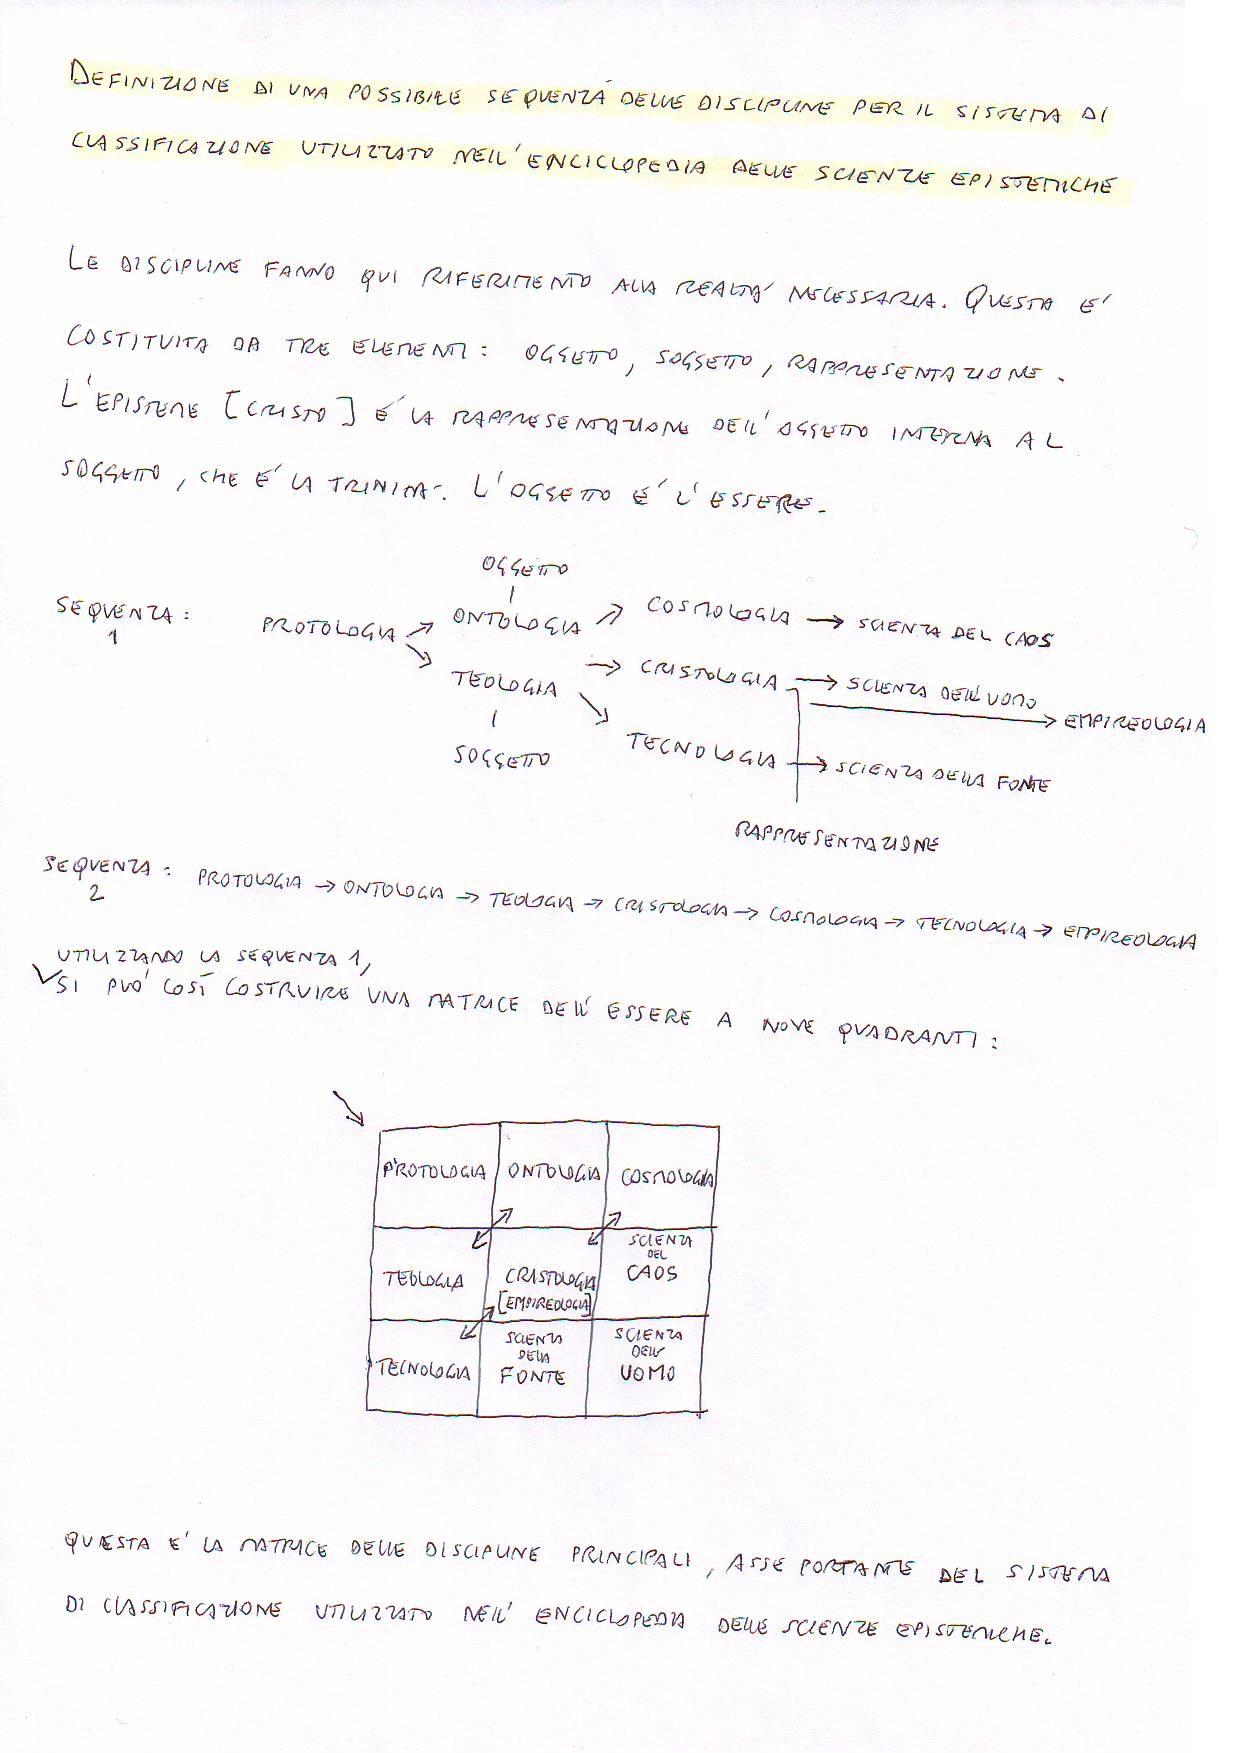 DEFINIZIONE DI UNA POSSIBILE SEQUENZA DELLE DISCIPLINE PER IL SISTEMA DI
CLASSIFICAZIONE UTILIZZATO NELL'ENCICLOPEDIA DELLE SCIENZE EPISTEMICHE
LE DISCIPLINE FANNO QUI RIFERIMENTO ALLA REALTA' NECESSARIA. QUESTA E'
COSTITUITA DA TRE ELEMENTI: OGGETTO, SOGGETTO, RAPPRESENTAZIONE.
L'EPISTEME [CRISTO] E' LA RAPPRESENTAZIONE DELL'OGGETTO INTERNA AL
SOGGETTO, CHE E' LA TRINITA'. L'OGGETTO E' L'ESSERE.
OGGETTO
SEQUENZA: 1 PROTOLOGIA ↗ ONTOLOGIA ↗ COSMOLOGIA → SCIENZA DEL CAOS
↘ TEOLOGIA → CRISTOLOGIA → SCIENZA DELL'UOMO
→ EMPIREOLOGIA
SOGGETTO ↘ TECNOLOGIA → SCIENZA DELLA FONTE
RAPPRESENTAZIONE
SEQUENZA: 2 PROTOLOGIA → ONTOLOGIA → TEOLOGIA → CRISTOLOGIA → COSMOLOGIA → TECNOLOGIA → EMPIREOLOGIA
UTILIZZANDO LA SEQUENZA 1,
SI PUO' COSÌ COSTRUIRE UNA MATRICE DELL'ESSERE A NOVE QUADRANTI:
PROTOLOGIA ONTOLOGIA COSMOLOGIA
TEOLOGIA CRISTOLOGIA [EMPIREOLOGIA] SCIENZA DEL CAOS
TECNOLOGIA SCIENZA DELLA FONTE SCIENZA DELL' UOMO
QUESTA E' LA MATRICE DELLE DISCIPLINE PRINCIPALI, ASSE PORTANTE DEL SISTEMA
DI CLASSIFICAZIONE UTILIZZATO NELL'ENCICLOPEDIA DELLE SCIENZE EPISTEMICHE.